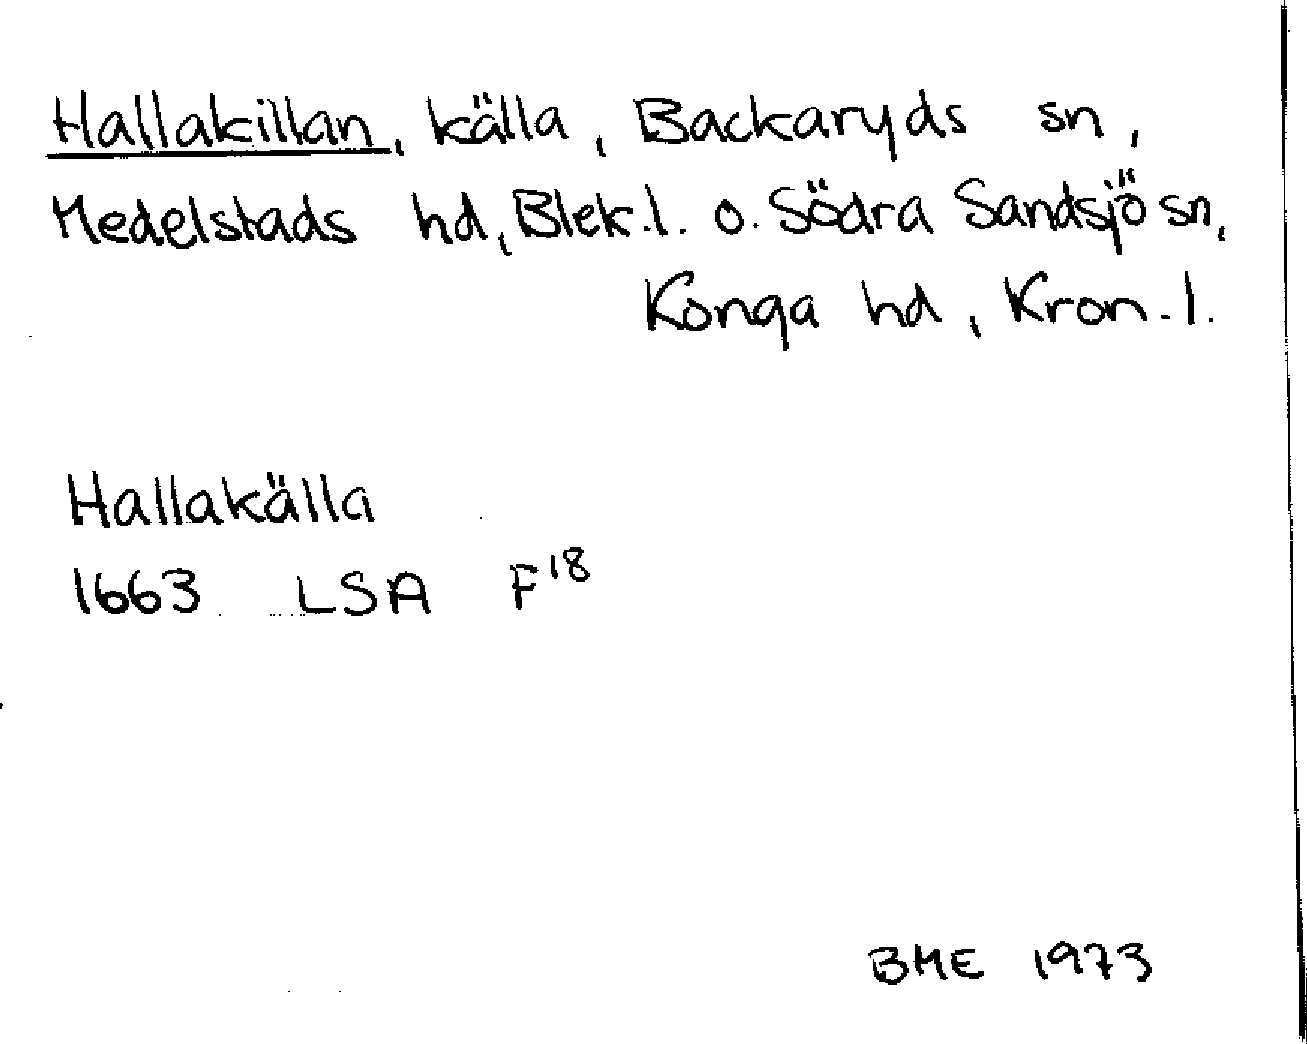 Hallakillan, källa, Backaryds sn,
Medelstads hd, Blek.l. o. Södra Sandsjö sn,
Konga hd, Kron.l.
Hallakälla
1663 LSA F18
BME 1973